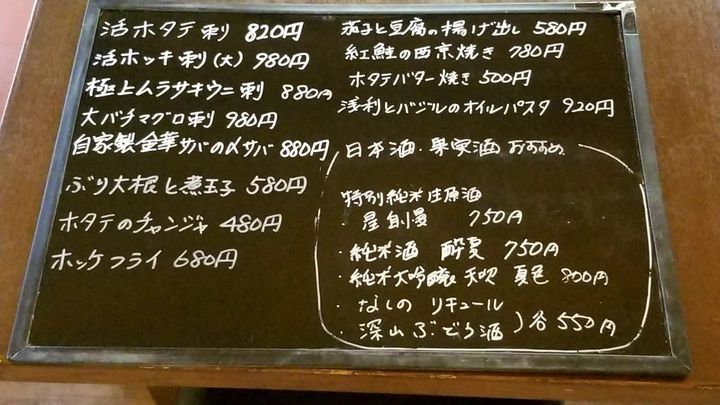 活ホタテ刺 820円
活ホッキ刺(大) 980円
極上ムラサキウニ刺 880円
大バチマグロ刺 980円
自家製金華サバの〆サバ 880円
ぶり大根と煮玉子 580円
ホタテのチャンジャ 480円
ホッケフライ 680円
茄子と豆腐の揚げ出し 580円
紅鮭の西京焼き 780円
ホタテバター焼き 500円
浅利とバジルのオイルパスタ 920円
日本酒・果実酒 おすすめ
特別純米生原酒
・ 750円
・純米酒 酔夏 750円
・純米大吟醸 天吹 夏色 800円
・なしの リキュール
・深山ぶどう酒 )各550円